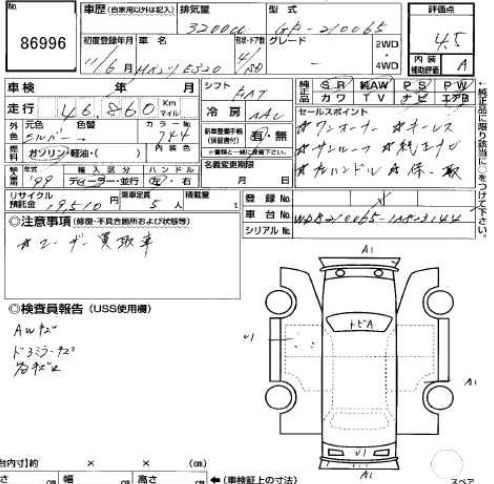 No.
86996
車歴 (自家用以外は記入) 排気量 3200cc 型式 GF-210065
初度登録年月 車名 形状・ドア数 グレード
11/6月 E320 4/SD 2WD・4WD
評価点 4.5
内装補助評価 A
車検 年 月 シフト FAT
走行 46,860 Km マイル 冷房 AAC
純正品 SR 純AW PS PW
カワ TV ナビ エアB
外色 元色 色替 カラーNo.
シルバー 744
新車整備手帳(保証書付) 有・無
セールスポイント
☆ワンオーナー ☆キーレス
☆サンルーフ ☆純正ナビ
☆左ハンドル ☆保、取
燃料 ガソリン・軽油・( ) 内装色
名義変更期限
月 日
輸入区分 ハンドル
'99 ディーラー・並行 左・右
リサイクル預託金 19,510円 乗車定員 5人 積載量 t
登録No.
車台No. WDB210065-1A
シリアルNo.
◎注意事項 (修復・不具合箇所および状態等)
☆ユーザー買取車
◎検査員報告 (USS使用欄)
AWキズ
ドアミラーキズ
A1
トビA
U1
A1
U1
A1
←純正品に限り該当に○をつけて下さい。
台内寸)約 × × (cm)
さ cm 幅 cm 高さ cm ←(車検証上の寸法)
スペア